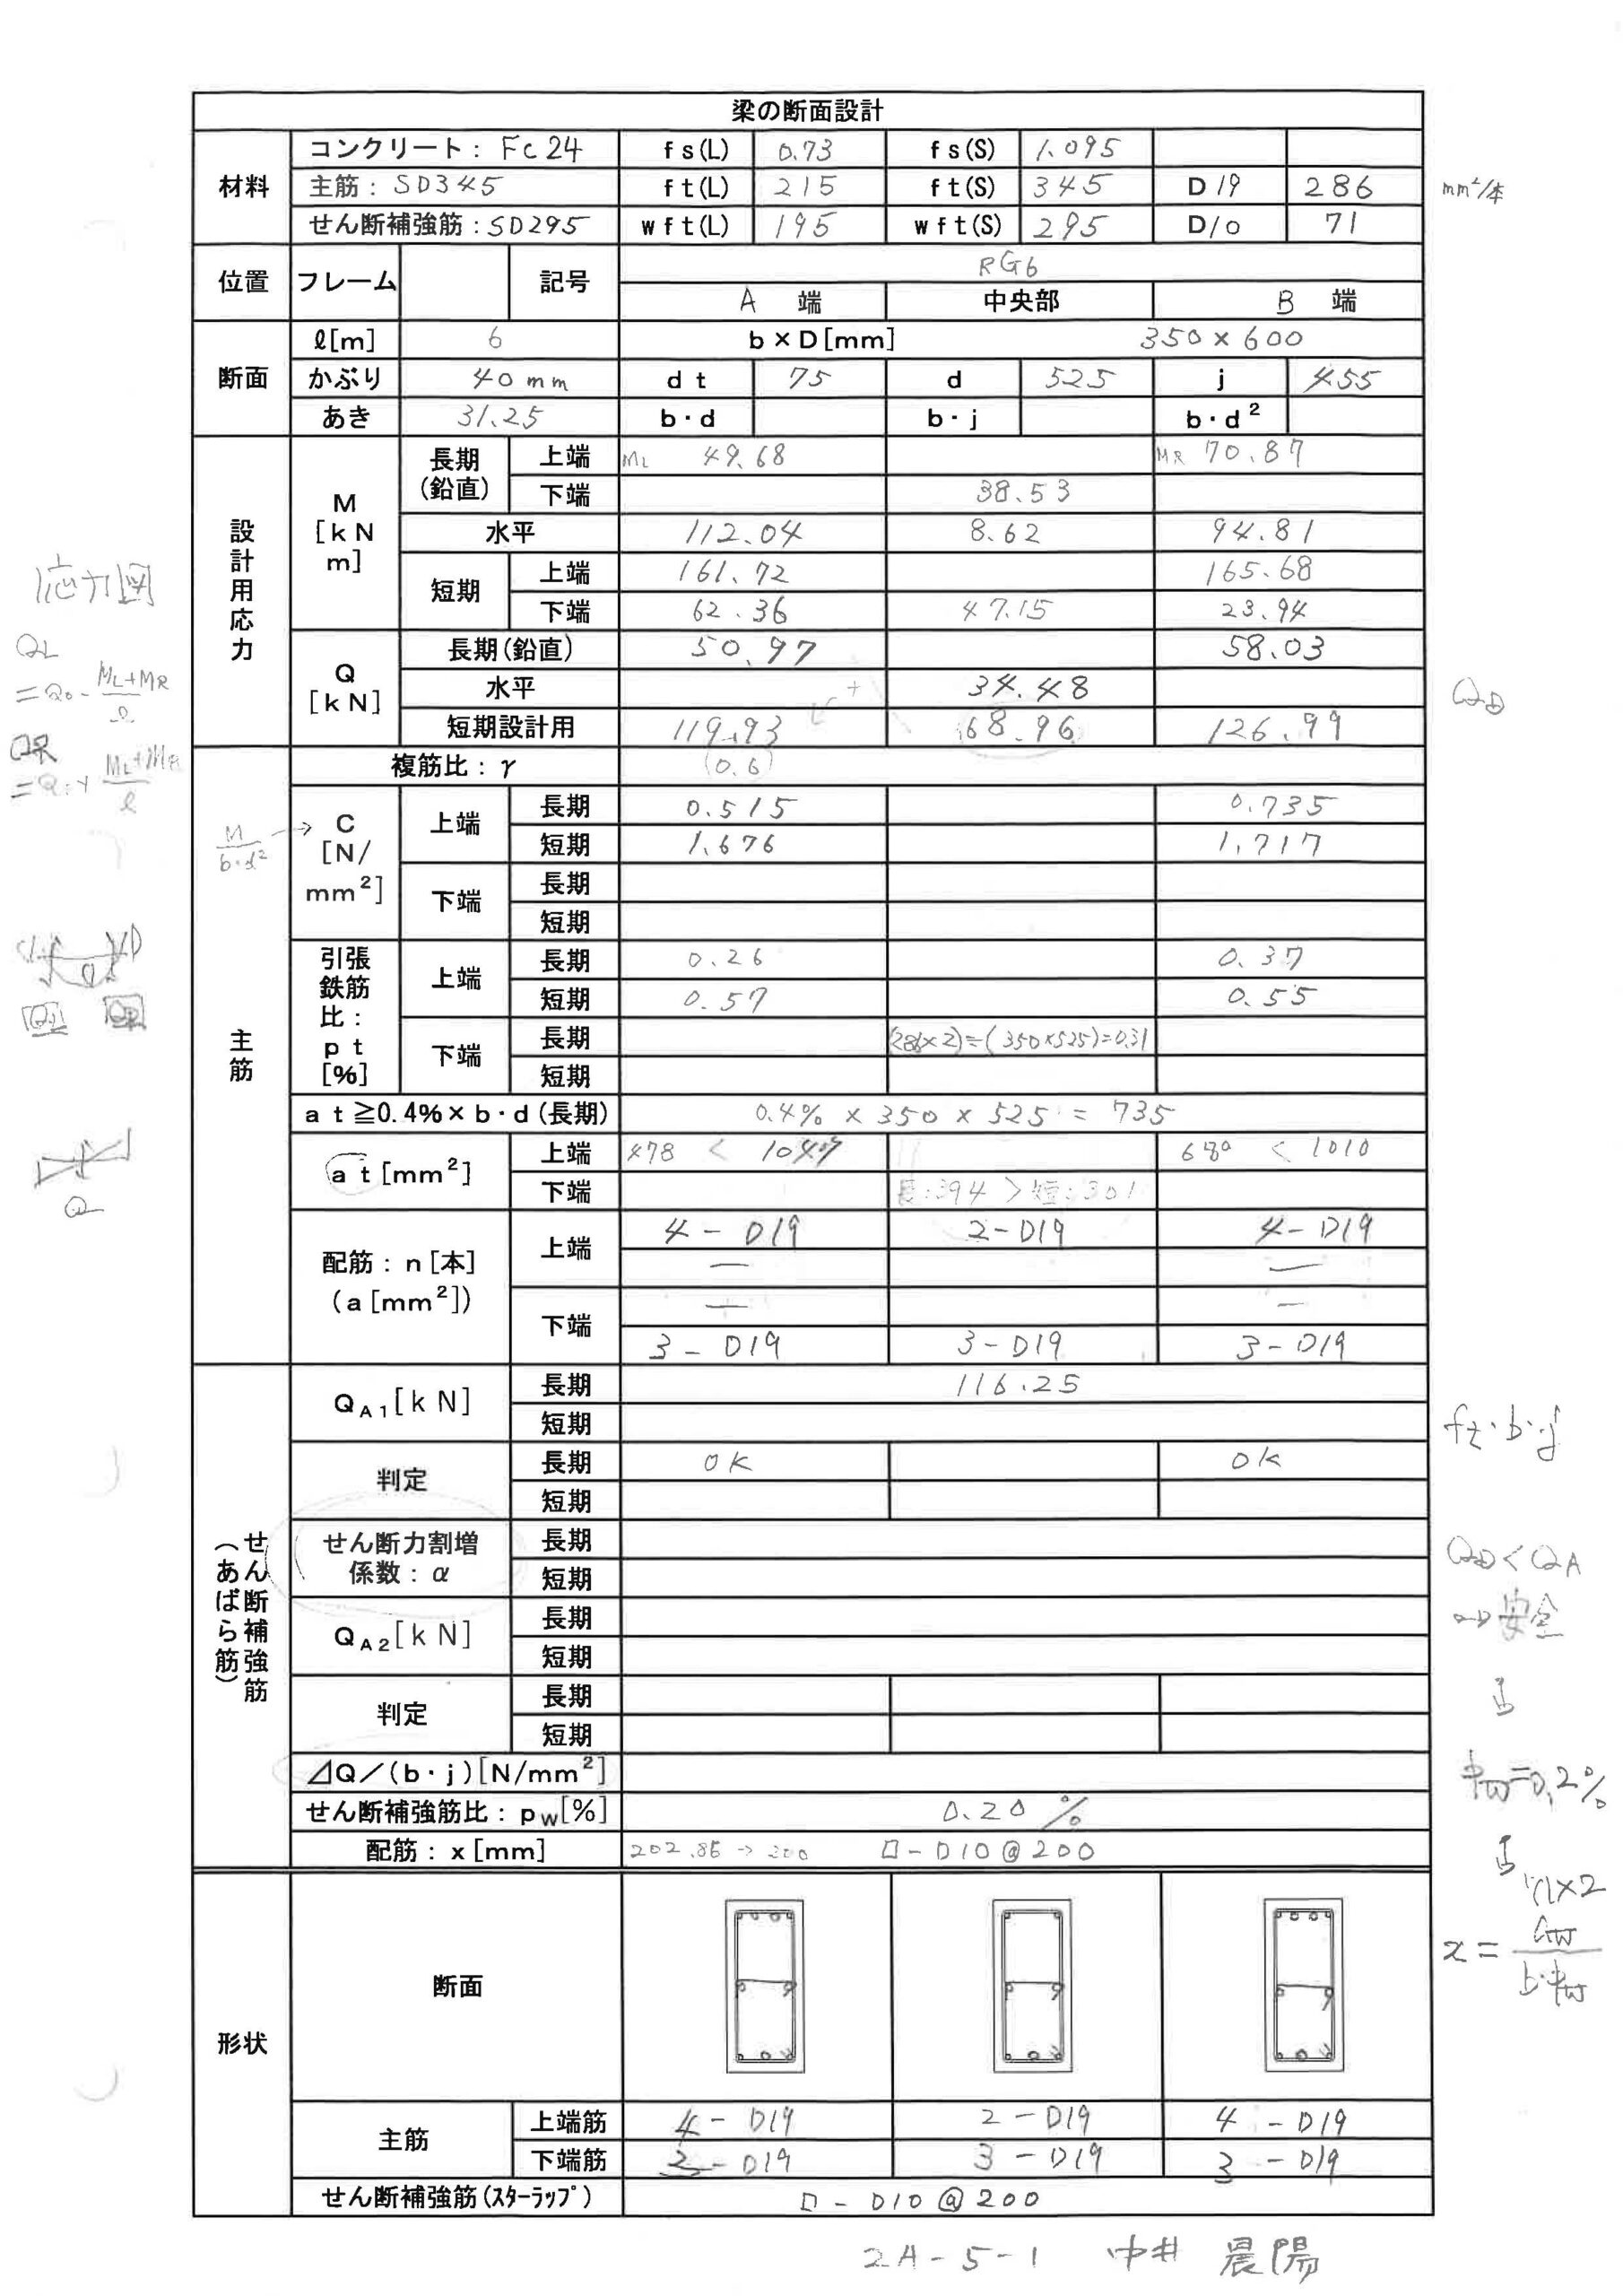 梁の断面設計
材料 コンクリート：Fc24 fs(L) 0.73 fs(S) 1.095
主筋：SD345 ft(L) 215 ft(S) 345 D19 286 mm²/本
せん断補強筋：SD295 wft(L) 195 wft(S) 295 D10 71
位置 フレーム 記号 RG6
A 端 中央部 B 端
断面 ℓ[m] 6 b×D[mm] 350×600
かぶり 40mm dt 75 d 525 j 455
あき 31.25 b·d b·j b·d²
設計用応力 M[kNm] 長期(鉛直) 上端 ML 49.68 MR 70.87
下端 38.53
水平 112.04 8.62 94.81
短期 上端 161.72 165.68
下端 62.36 47.15 23.94
Q[kN] 長期(鉛直) 50.97 58.03
水平 34.48
短期設計用 119.93 68.96 126.99
QD
応力図
QL
=Q0-(ML+MR)/ℓ
QR
=Q0+(ML+MR)/ℓ
主筋 複筋比：γ (0.6)
M/b·d² → C[N/mm²] 上端 長期 0.515 0.735
短期 1.676 1.717
下端 長期
短期
引張鉄筋比：pt[%] 上端 長期 0.26 0.37
短期 0.57 0.55
下端 長期 (286×2)÷(350×525)=0.31
短期
at≧0.4%×b·d(長期) 0.4% × 350 × 525 = 735
at[mm²] 上端 478 < 1047 680 < 1010
下端 長:394 > 短:301
配筋：n[本] (a[mm²]) 上端 4-D19 2-D19 4-D19
— —
下端 — —
3-D19 3-D19 3-D19
Q
せん断補強筋(あばら筋) QA1[kN] 長期 116.25
短期
判定 長期 OK OK
短期
せん断力割増係数：α 長期
短期
QA2[kN] 長期
短期
判定 長期
短期
⊿Q／(b·j)[N/mm²]
せん断補強筋比：pw[%] 0.20%
配筋：x[mm] 202.86→200 □-D10@200
QD<QA
→安全
↓
pw=0.2%
↓
x=
形状 断面
主筋 上端筋 4-D19 2-D19 4-D19
下端筋 3-D19 3-D19 3-D19
せん断補強筋(ｽﾀｰﾗｯﾌﾟ) □-D10@200
2A-5-1 中井 晨陽